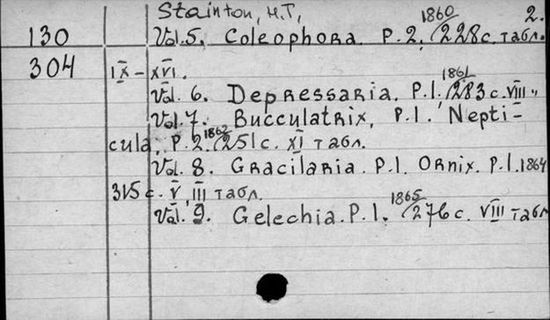 Stainton, H.T, 2.
130 Vol. 5. Coleophora. P. 2. 1860 /228 с. табл.
304 IX-XVI.
Vol. 6. Depressaria. P.I. 1861 /283 с. VIII „
Vol. 7. Bucculatrix, P.I. Nepti-
cula, P.2. 1862 /251 с. XI табл.
Vol. 8. Gracilaria. P.I. Ornix. P.I. 1864
315 с. V, III табл.
Vol. 9. Gelechia. P.I. 1865 /276 с. VIII табл